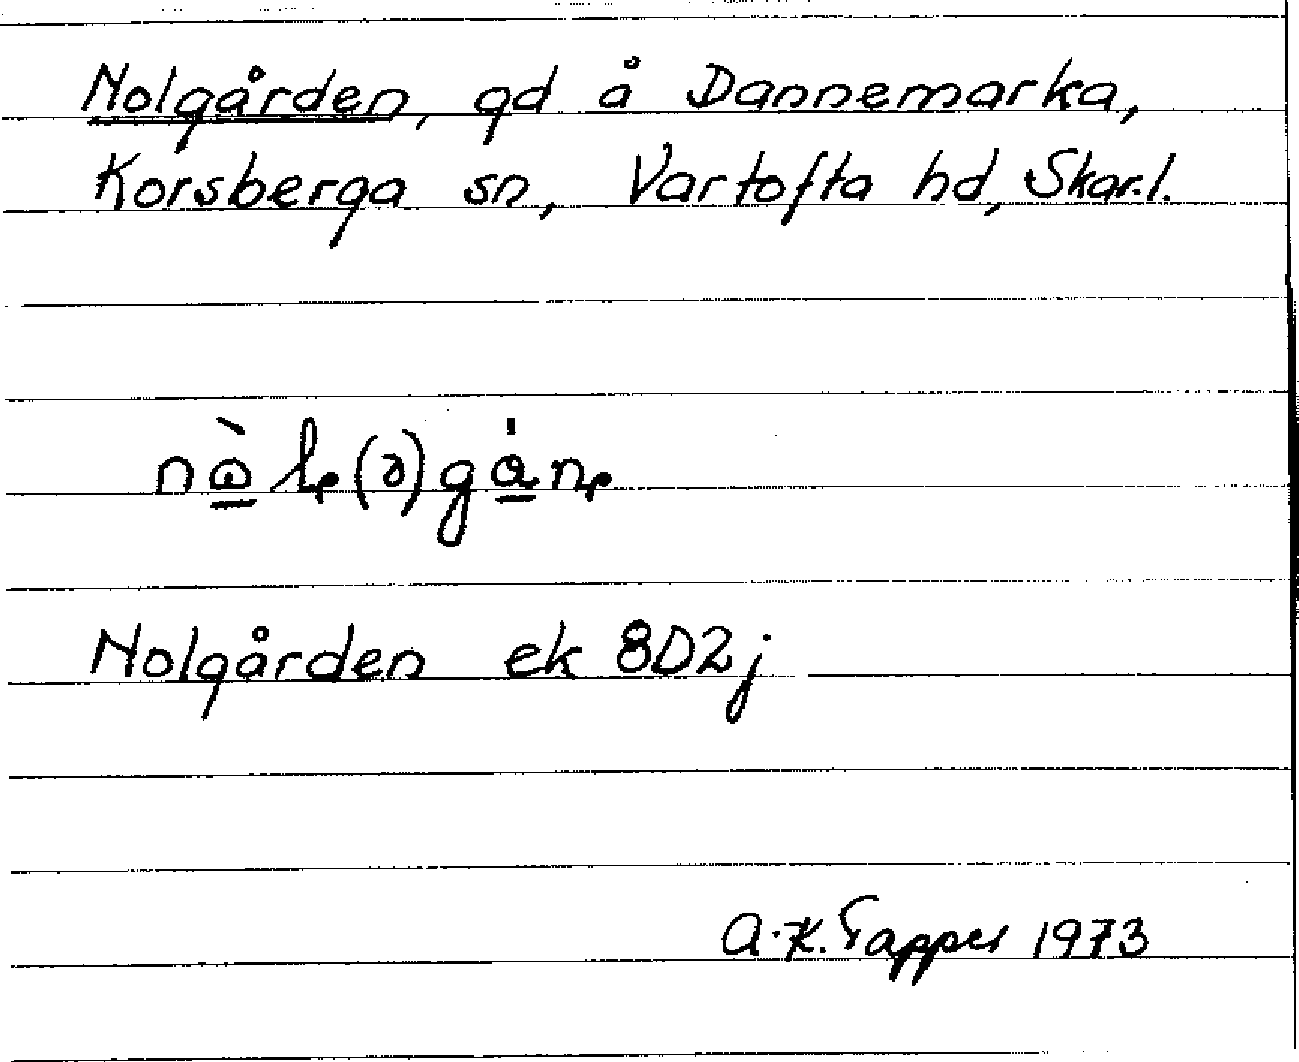 Nolgården, gd å Dannemarka,
Korsberga sn, Vartofta hd, Skar.l.
Nolgården ek 8D2j
A.K. Tapper 1973